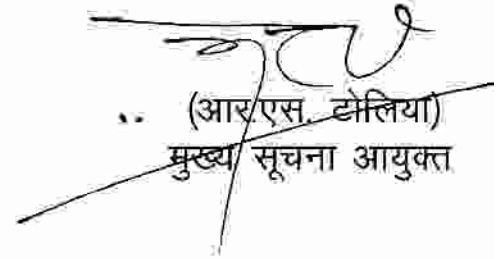 (आर.एस. टोलिया)
मुख्य सूचना आयुक्त